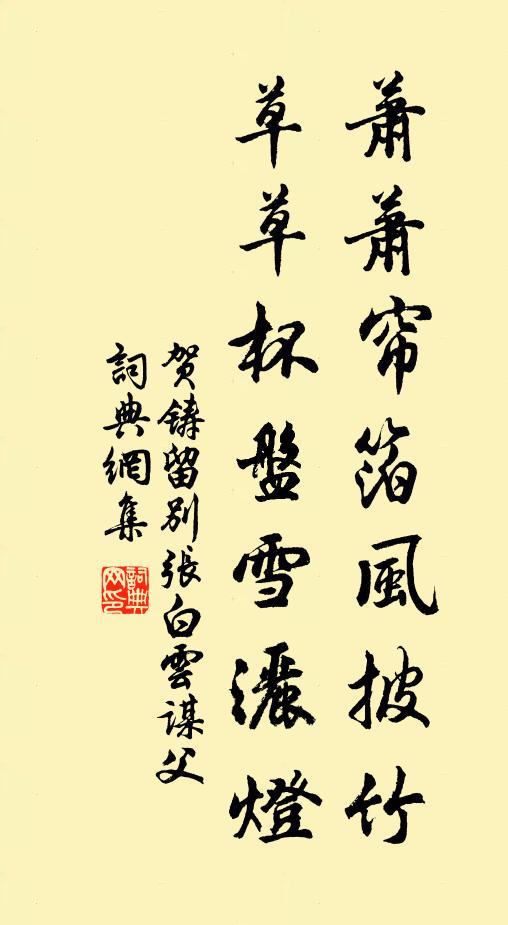 蕭蕭帘箔風披竹
草草杯盤雪灑燈
贺鑄留别張白雲谋父
詞典網集
詞典网印